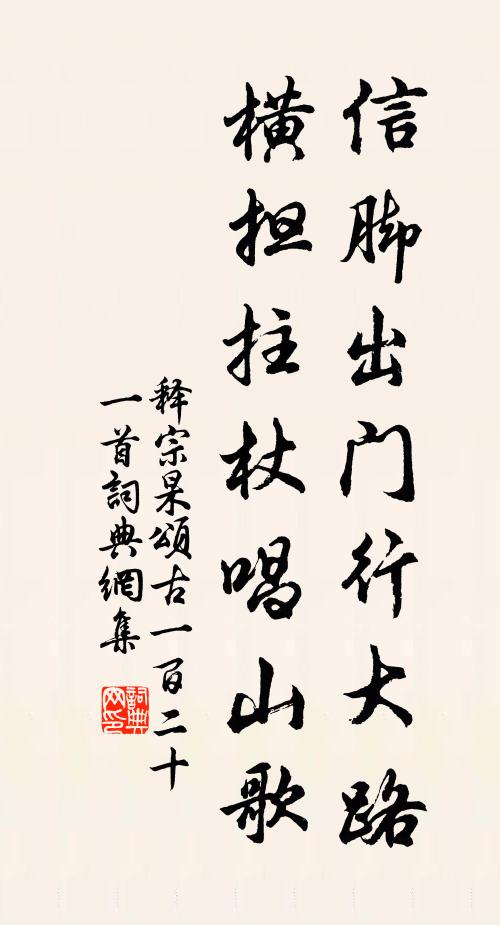 信脚出门行大路
横担拄杖唱山歌
释宗杲頌古一百二十
一首詞典網集
詞典
网印